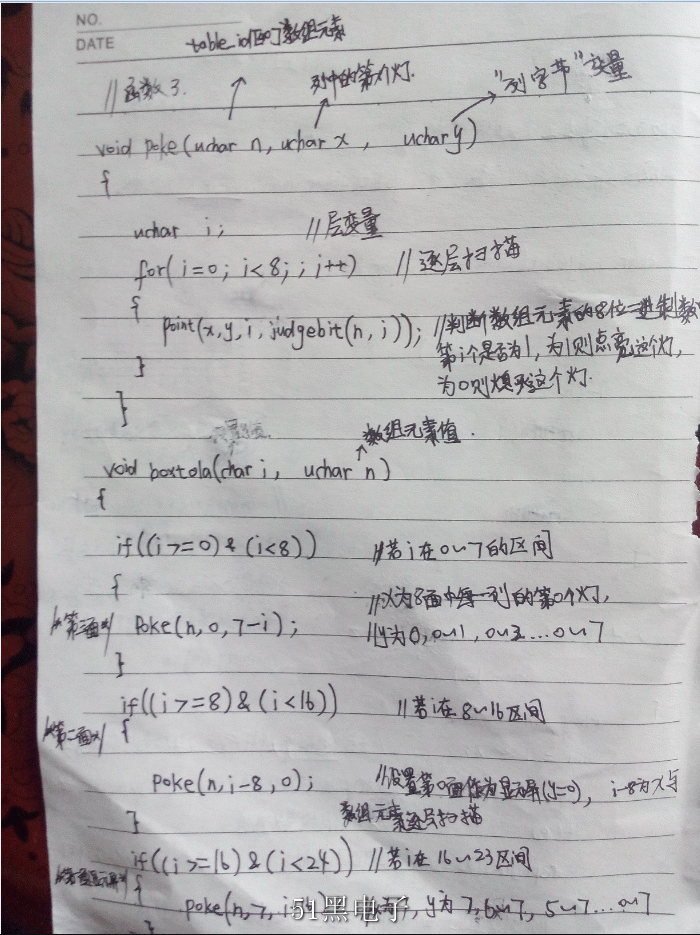 NO.
DATE
table_id[]的数组元素
//函数3.
列中的第个灯.
"列字节"变量
void poke(uchar n, uchar x, uchar y)
{
uchar i; //层变量
for(i=0; i<8; ; i++) //逐层扫描
{
point(x,y,i,judgebit(n,i)); //判断数组元素的8位二进制数
第i个是否为1,为1则点亮这个灯,
为0则熄灭这个灯.
}
}
数组元素值.
void boxtola(char i, uchar n)
{
if((i>=0)&(i<8)) //若i在0~7的区间
{ //x为8面中每一列的第0个灯,
/*第三面*/ Poke(n,0,7-i); //y为0,0~1,0~2...0~7
}
if((i>=8)&(i<16)) //若i在8~16区间
/*第二面*/ {
poke(n,i-8,0); //设置第0面作为显示屏(y=0), i-8为x与
数组元素逐层扫描
}
if((i>=16)&(i<24)) //若i在16~23区间
{
poke(n,7,i y为7,6~7,5~7...0~7
51黑电子
}